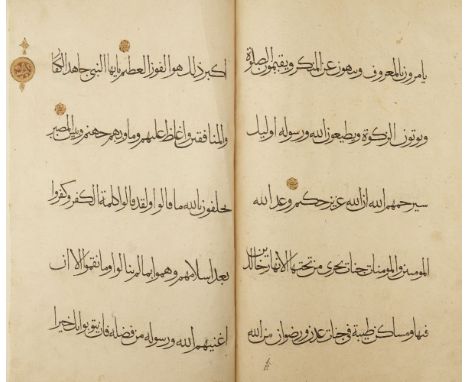 يامرون بالمعروف وينهون عن المنكر ويقيمون الصلوة
ويوتون الزكوة ويطيعون الله ورسوله اوليك
سيرحمهم الله ان الله عزيز حكيم وعد الله
المومنين والمومنات جنات تجرى من تحتها الانهار خالدين
فيها ومساكن طيبة فى جنات عدن ورضوان من الله
اكبر ذلك هو الفوز العظيم يايها النبى جاهد الكفار
والمنافقين واغلظ عليهم وماويهم جهنم وبيس المصير
يحلفون بالله ما قالوا ولقد قالوا كلمة الكفر وكفروا
بعد اسلامهم وهموا بما لم ينالوا وما نقموا الا ان
اغنيهم الله ورسوله من فضله فان يتوبوا يك خيرا